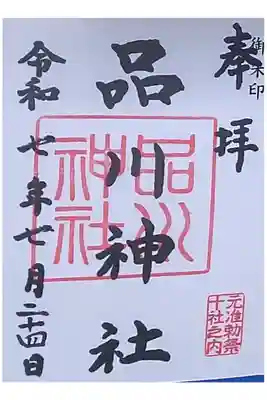 御朱印
奉拝
品川神社
品川神社
元准勅祭
十社之内
令和七年七月二十四日